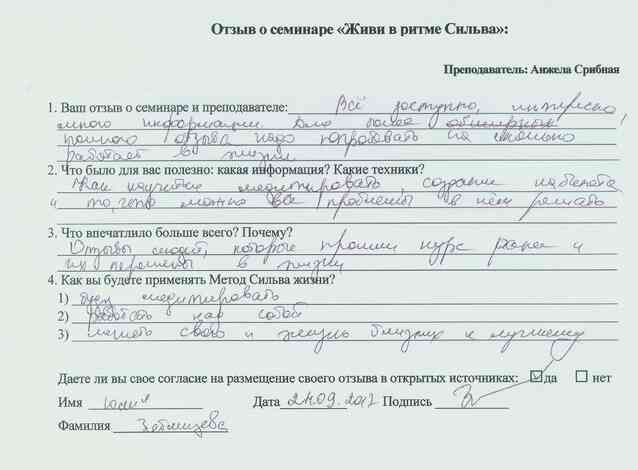 Отзыв о семинаре «Живи в ритме Сильва»:
Преподаватель: Анжела Срибная
1. Ваш отзыв о семинаре и преподавателе: Всё доступно, интересно,
много информации. Для более
полного отзыва надо попробовать на сколько
работает в жизни
2. Что было для вас полезно: какая информация? Какие техники?
Как научиться медитировать, создание кабинета
и то, что можно все проблемы в нём решать
3. Что впечатлило больше всего? Почему?
Отзывы людей, которые прошли курс ранее и
их перемены в жизни
4. Как вы будете применять Метод Сильва жизни?
1) буду медитировать
2) работать над собой
3) менять свою и жизнь близких к лучшему
Даете ли вы свое согласие на размещение своего отзыва в открытых источниках: да нет
Имя Юлия Дата 24.09.2017 Подпись
Фамилия